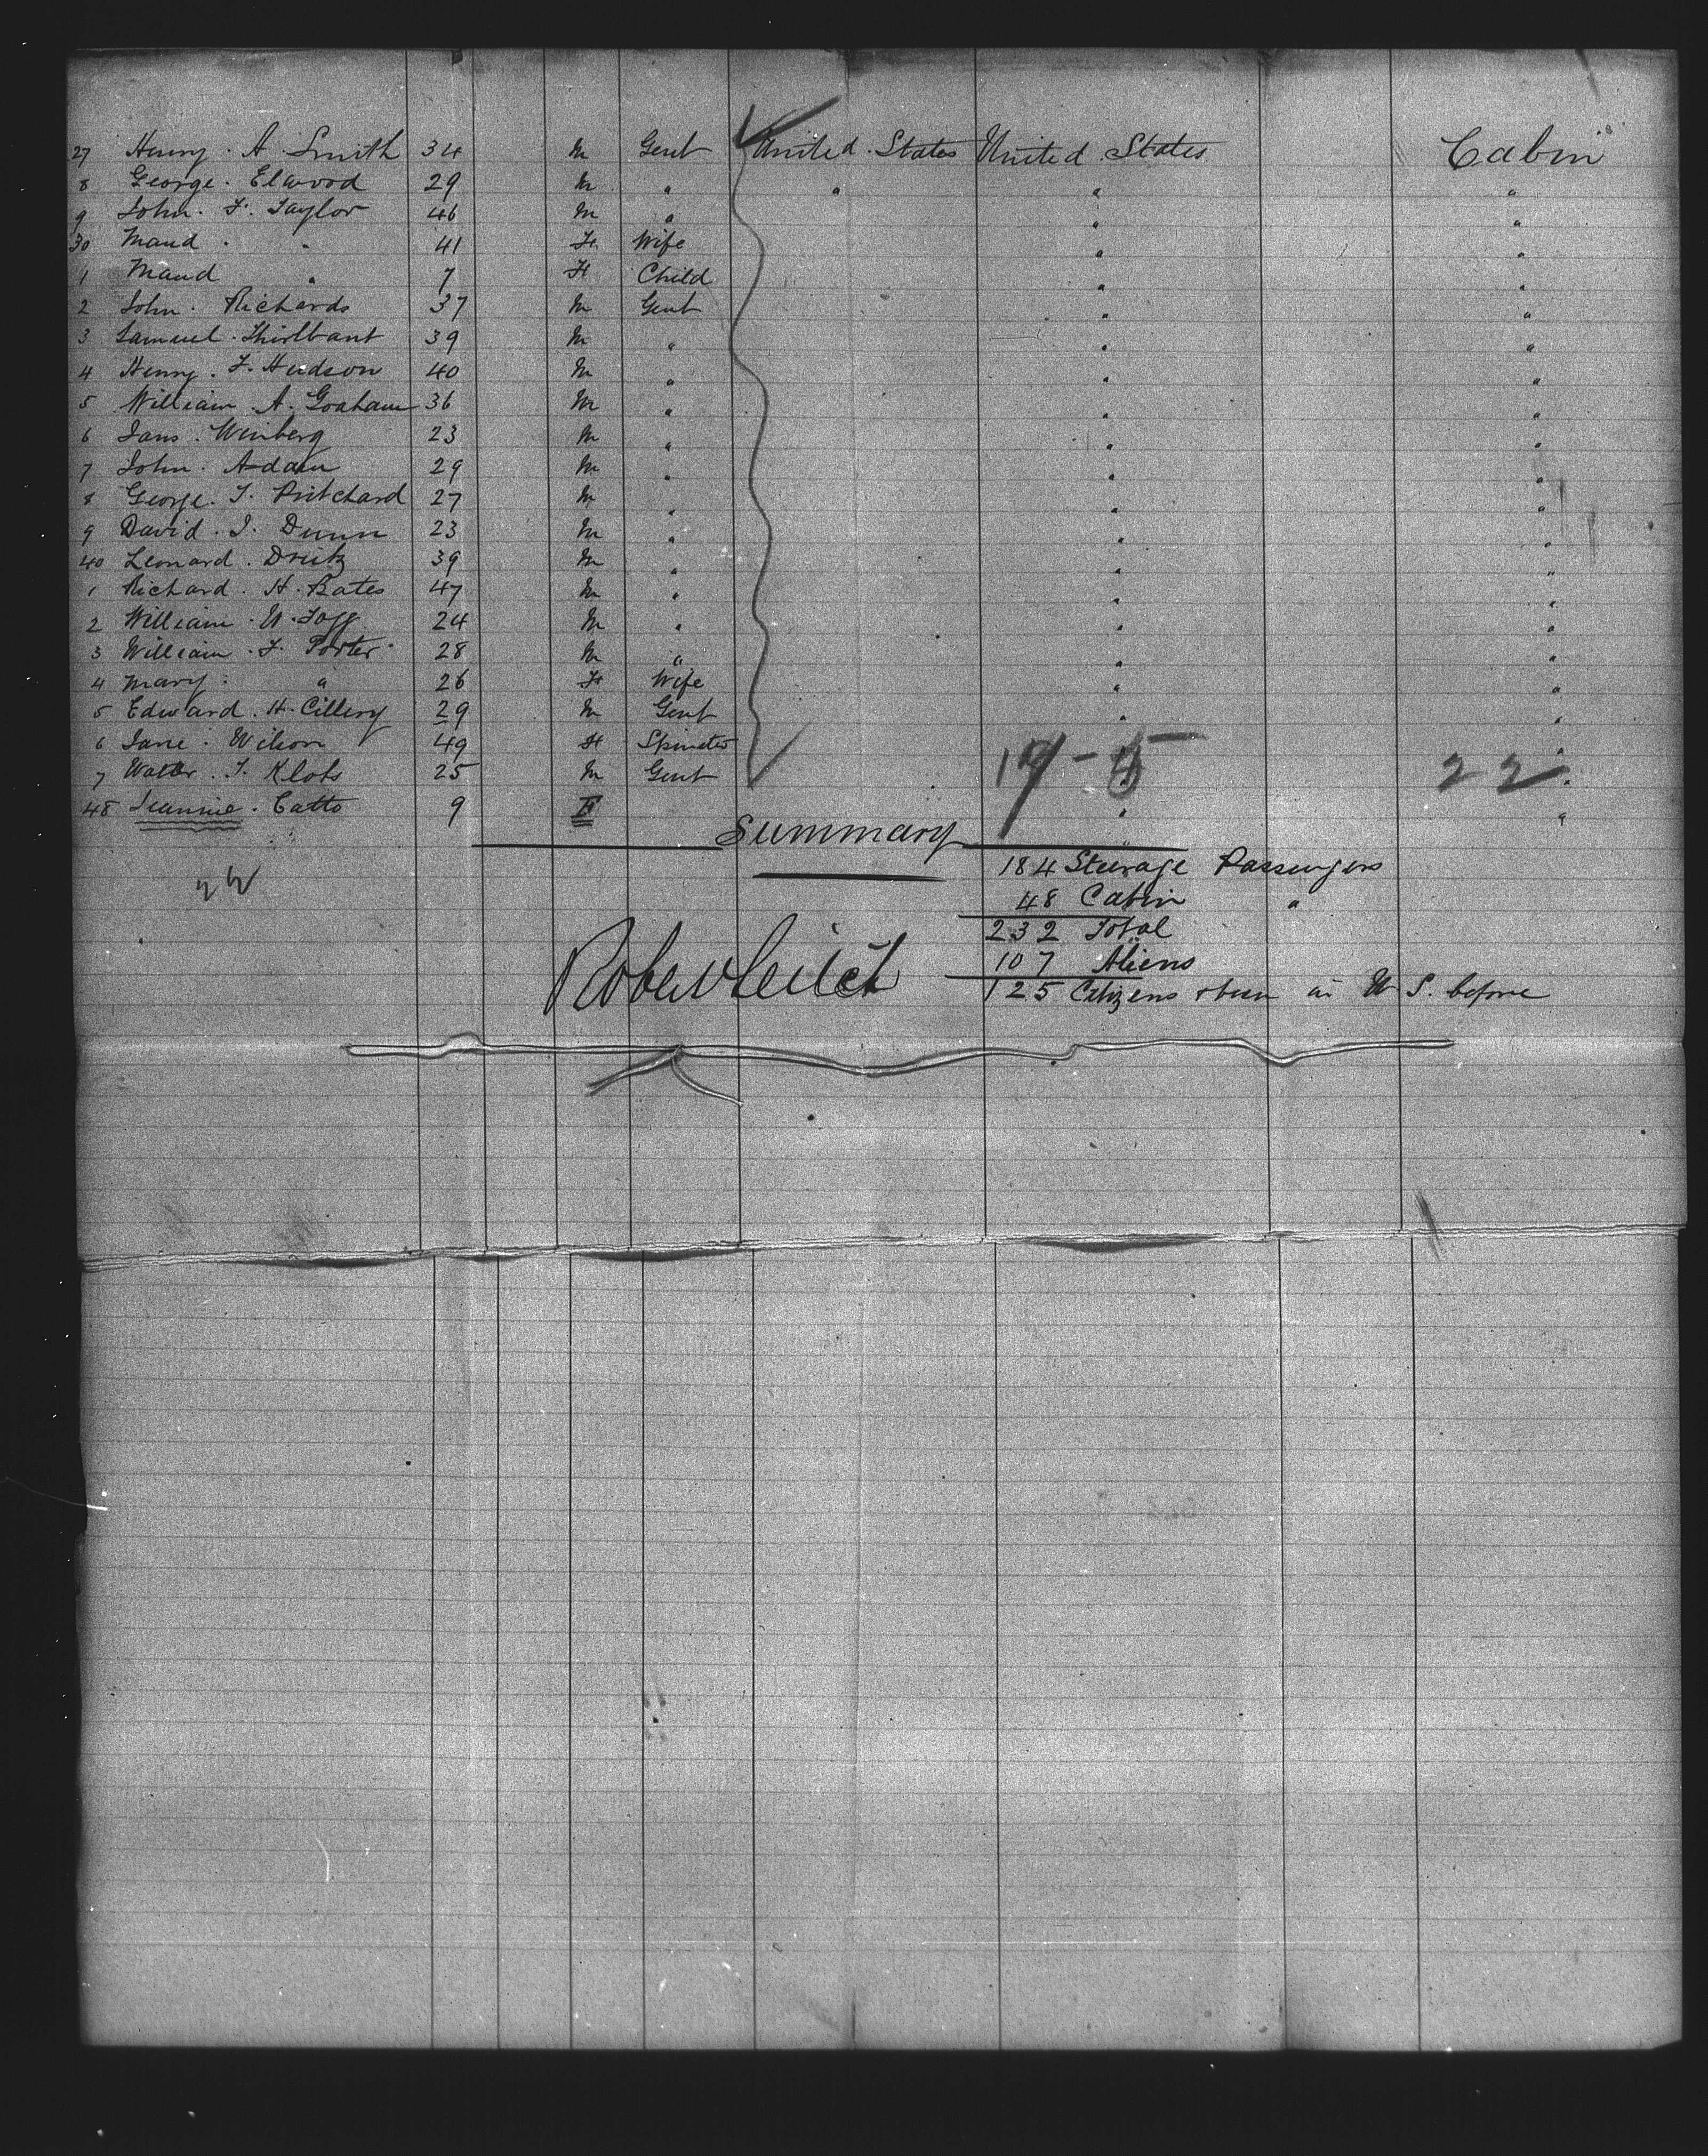 27 Henry . A . Smith 34 M Gent United . States United . States Cabin
8 George . Elwood 29 M " " " "
9 John . F. Taylor 46 M " " "
30 Maud . " 41 F Wife " "
1 Maud " 7 F Child " "
2 John . Richards 37 M Gent " "
3 Samuel . 39 M " " "
4 Henry . F. Hudson 40 M " " "
5 William . A. Graham 36 M " " "
6 . Weinberg 23 M " " "
7 John . Adam 29 M " " "
8 George . T. Pritchard 27 M " " "
9 David . I. Dunn 23 M " " "
40 Leonard . 39 M " " "
1 Richard . H. Bates 47 M " " "
2 William . 24 M " " "
3 William . F. Porter 28 M " " "
4 Mary . " 26 F Wife " "
5 Edward . H. Cillery 29 M Gent " "
6 Jane . Wilson 49 F Spinster " "
7 Walter . T. Klots 25 M Gent 17-5 22 "
48 Jeannie . Catto 9 F " "
Summary
184 Steerage Passengers
22
48 Cabin "
232 Total
Robert Leitch
107 Aliens
125 Citizens & been in U S. before